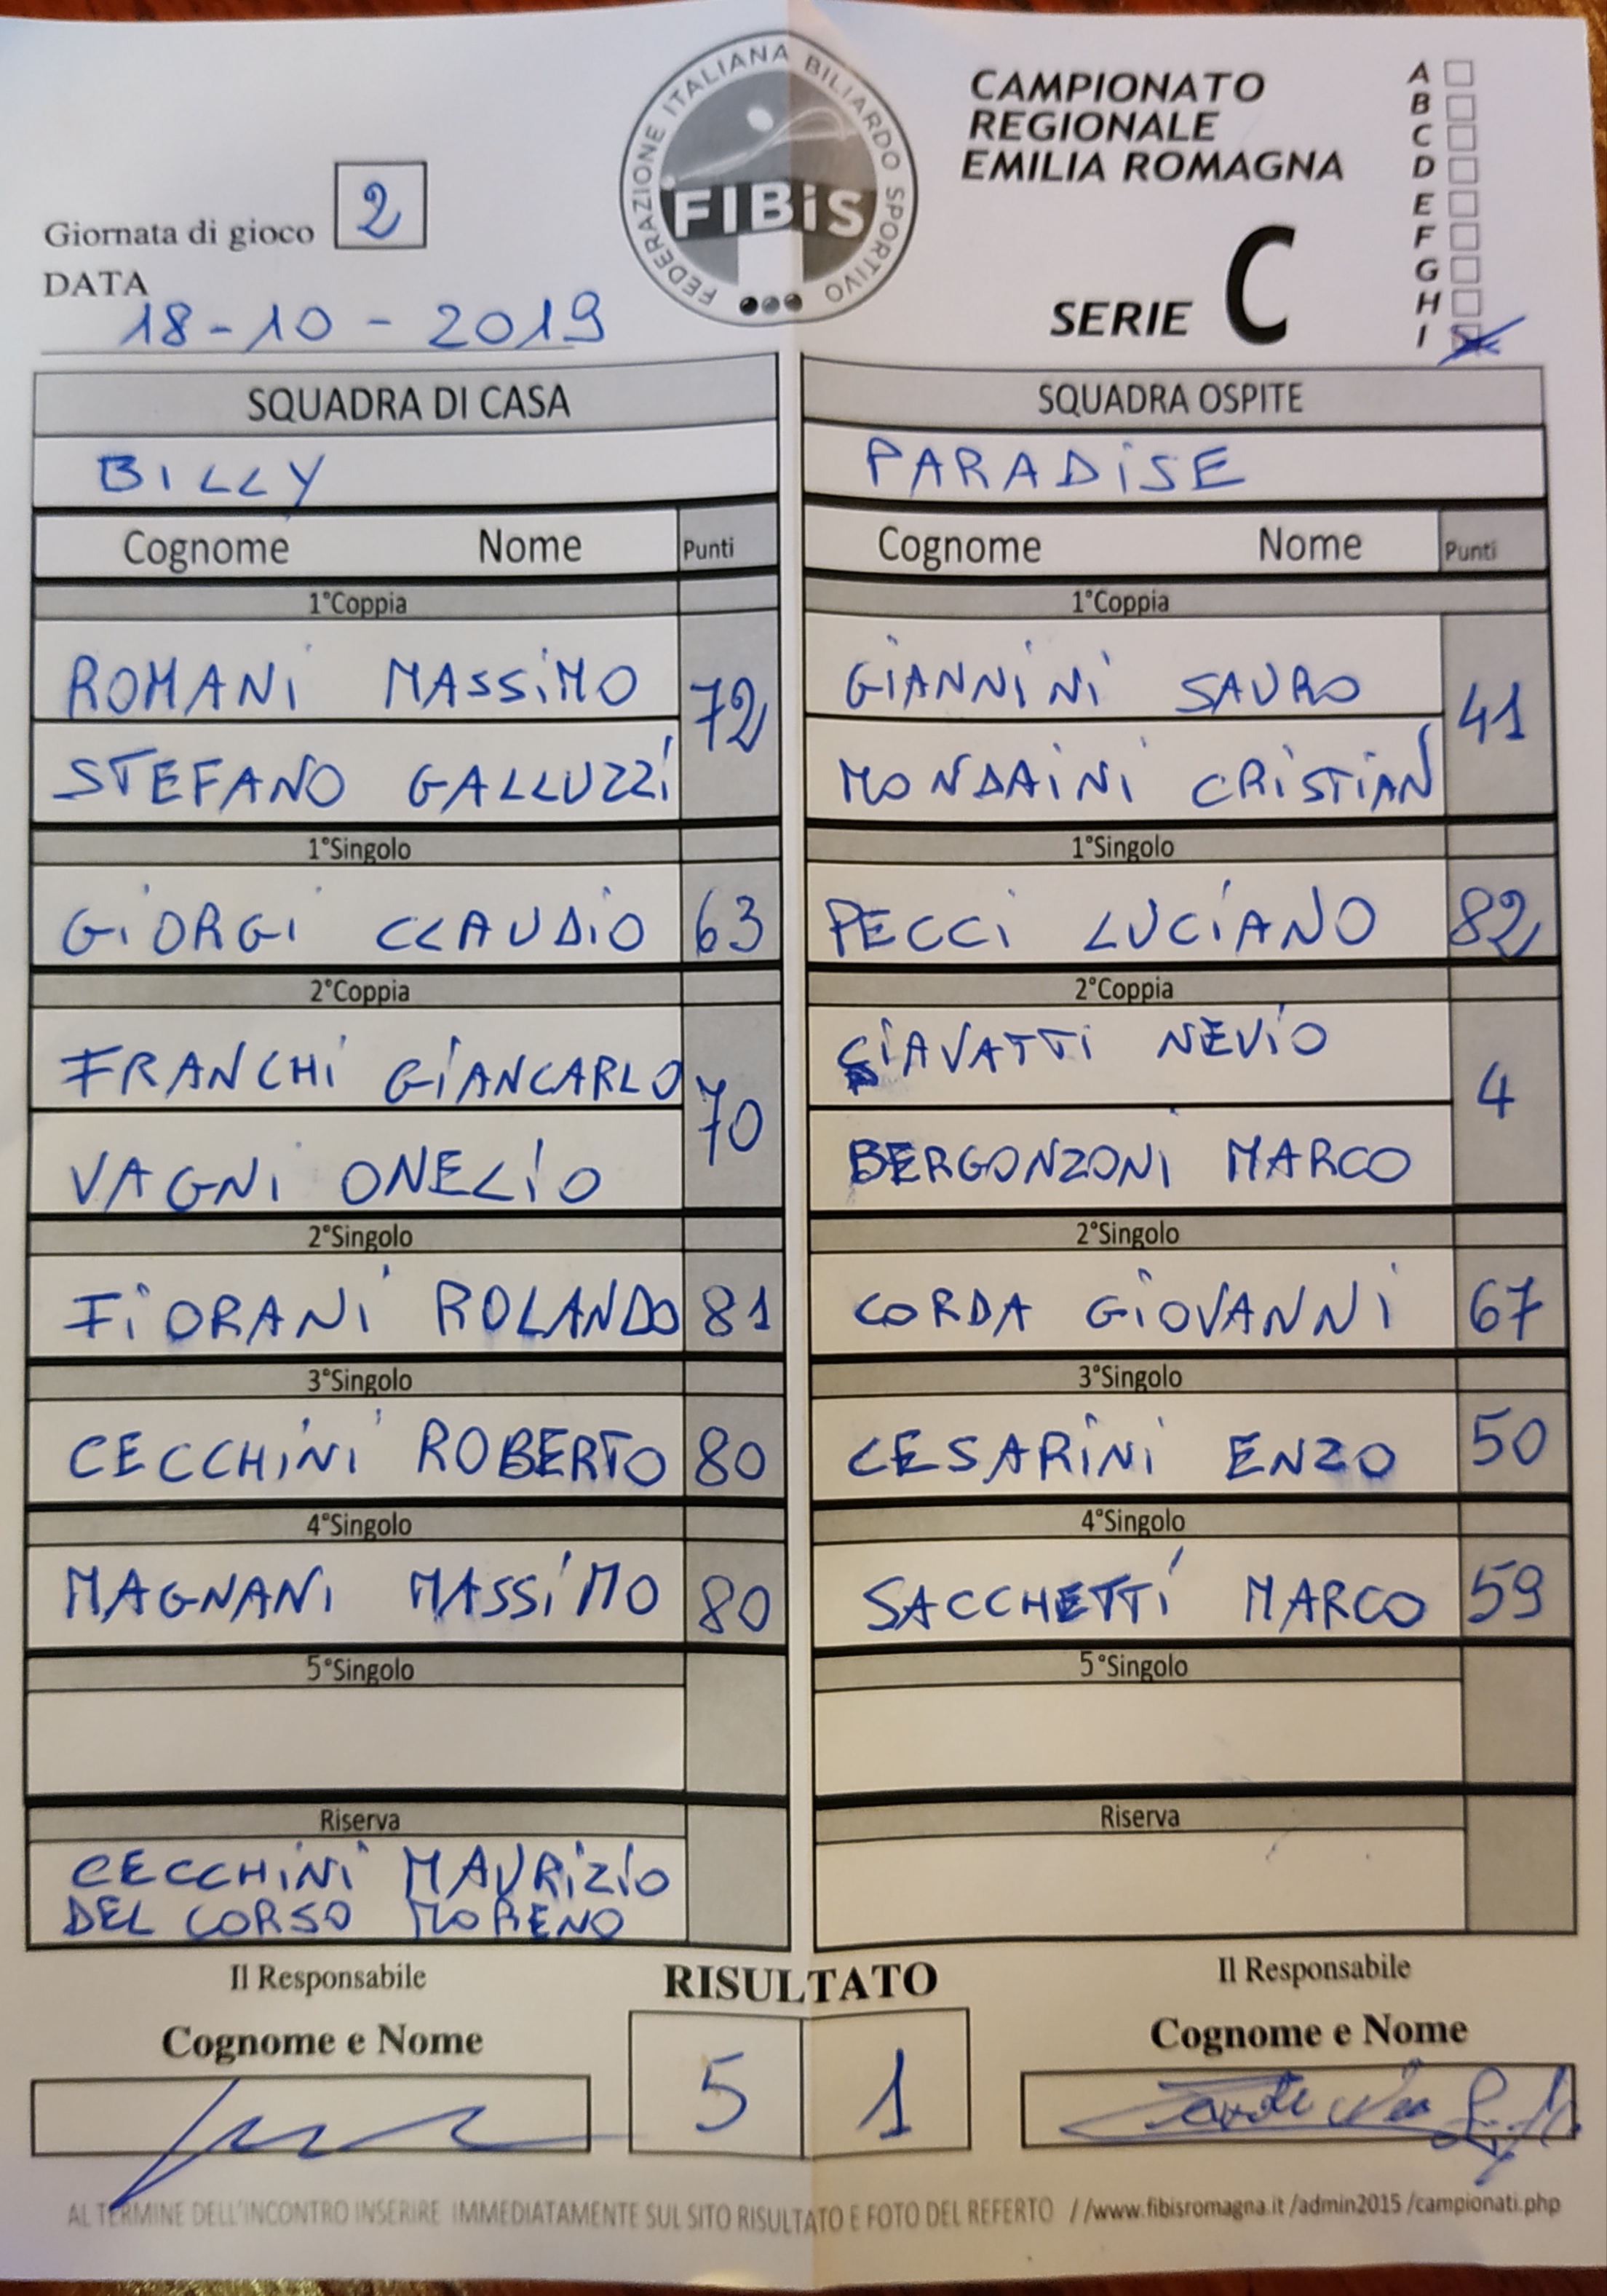 FEDERAZIONE ITALIANA BILIARDO SPORTIVO
FIBiS
CAMPIONATO
REGIONALE
EMILIA ROMAGNA
SERIE C
A
B
C
D
E
F
G
H
I
Giornata di gioco 2
DATA
18-10-2019
SQUADRA DI CASA
SQUADRA OSPITE
BILLY
PARADiSE
Cognome Nome Punti
Cognome Nome Punti
1°Coppia
1°Coppia
ROMANi MASSiMO 72
GiANNiNi SAURO 41
STEFANO GALLUZZi
MONDAiNi CRiSTiAN
1°Singolo
1°Singolo
GiORGi CLAUDiO 63
PECCi LUCiANO 82
2°Coppia
2°Coppia
FRANCHi GiANCARLO 70
NEViO 4
VAGNi ONELiO
BERGONZONi MARCO
2°Singolo
2°Singolo
FiORANi ROLANDO 81
CORDA GiOVANNi 67
3°Singolo
3°Singolo
CECCHiNi ROBERTO 80
CESARiNi ENZO 50
4°Singolo
4°Singolo
MAGNANi MASSiMO 80
SACCHETTi MARCO 59
5°Singolo
5°Singolo
Riserva
Riserva
CECCHiNi MAURiZiO
DEL CORSO MORENO
Il Responsabile
RISULTATO
Il Responsabile
Cognome e Nome
5 1
Cognome e Nome
AL TERMINE DELL'INCONTRO INSERIRE IMMEDIATAMENTE SUL SITO RISULTATO E FOTO DEL REFERTO //www.fibisromagna.it /admin2015 /campionati.php